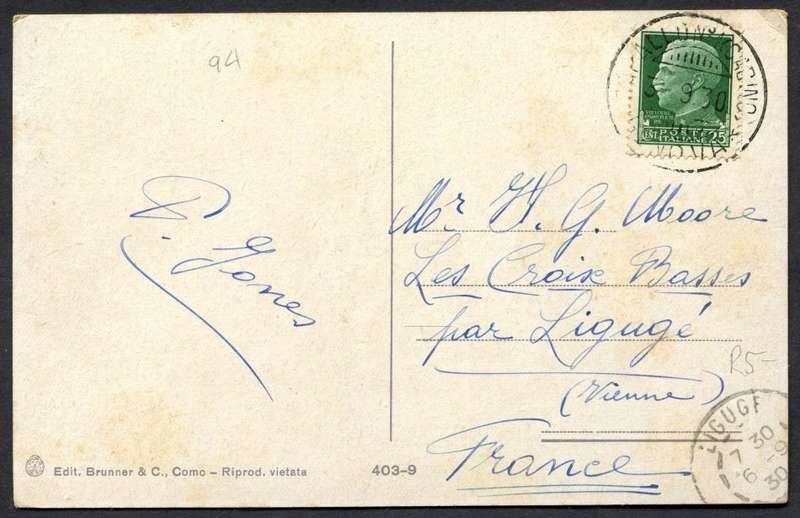 94
P. Jones
Edit. Brunner & C., Como – Riprod. vietata
403-9
9.30
CENT. POSTE 25
ITALIANE
Mr H. G. Moore
Les Croix Basses
par Ligugé
(Vienne)
France
R5-
LIGUGE
7 30
6 -9
30